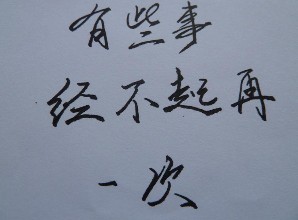 有些事
经不起再
一次